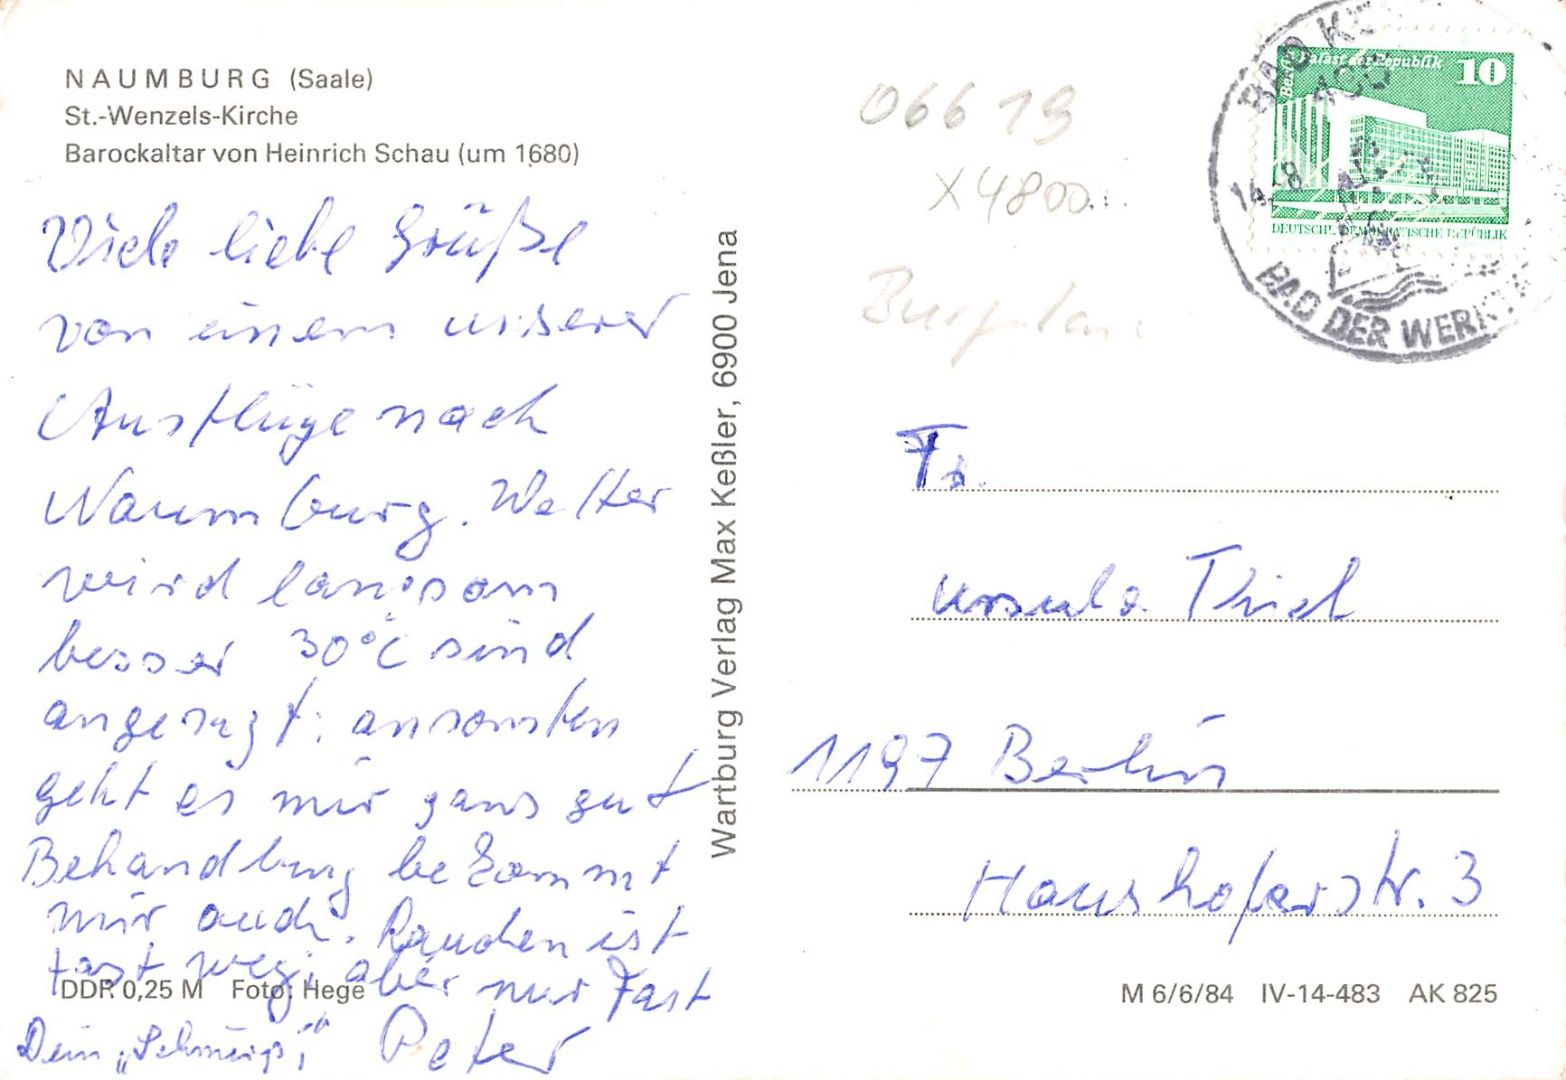 NAUMBURG (Saale)
St.-Wenzels-Kirche
Barockaltar von Heinrich Schau (um 1680)
Viele liebe Grüße
von einem unserer
Ausflüge nach
Naumburg. Wetter
wird langsam
besser 30°C sind
angesagt; ansonsten
geht es mir ganz gut
Behandlung bekommt
mir auch. Rauchen ist
fast weg; aber nur fast
Dein „ Peter
DDR 0,25 M Foto: Hege
Wartburg Verlag Max Keßler, 6900 Jena
06619
X4800
Palast der Republik 10
DEUTSCHE DEMOKRATISCHE REPUBLIK
BAD
BAD DER
Fr.
Ursula Thiel
1197 Berlin
Haushoferstr. 3
M 6/6/84 IV-14-483 AK 825